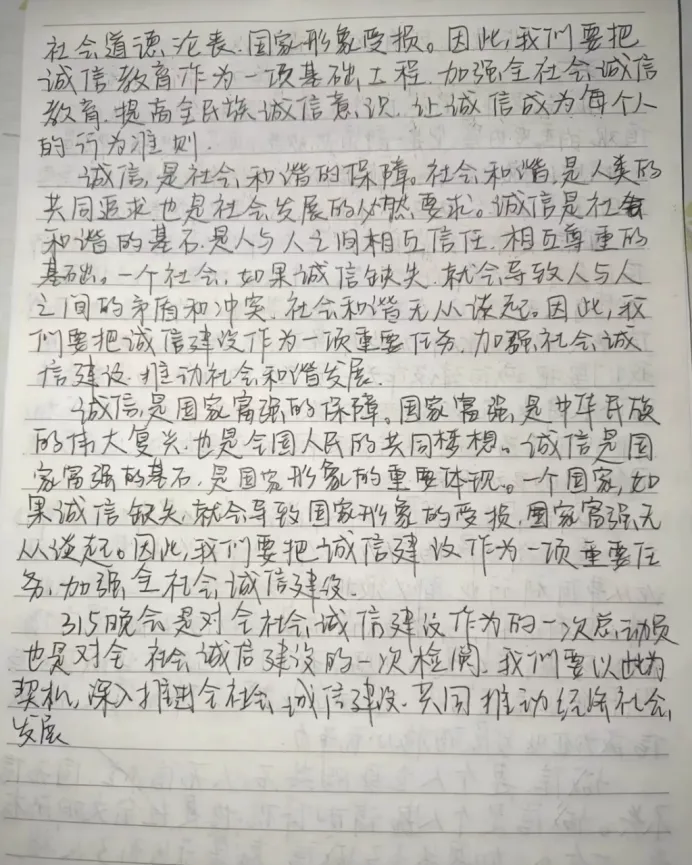 社会道德沦丧.国家形象受损。因此,我们要把
诚信教育作为一项基础工程.加强全社会诚信
教育.提高全民族诚信意识.让诚信成为每个人
的行为准则.
诚信,是社会和谐的保障。社会和谐,是人类的
共同追求也是社会发展的必然要求。诚信是社会
和谐的基石.是人与人之间相互信任.相互尊重的
基础。一个社会,如果诚信缺失.就会导致人与人
之间的矛盾和冲突.社会和谐无从谈起。因此,我
们要把诚信建设作为一项重要任务.加强社会诚
信建设.推动社会和谐发展.
诚信,是国家富强的保障。国家富强,是中华民族
的伟大复兴.也是全国人民的共同梦想。诚信是国
家富强的基石,是国家形象的重要体现。一个国家,如
果诚信缺失.就会导致国家形象的受损.国家富强无
从谈起。因此,我们要把诚信建设作为一项重要任
务.加强全社会诚信建设.
315晚会是对全社会诚信建设作为的一次总动员
也是对全社会诚信建设的一次检阅.我们要以此为
契机,深入推进全社会诚信建设.共同推动经济社会
发展